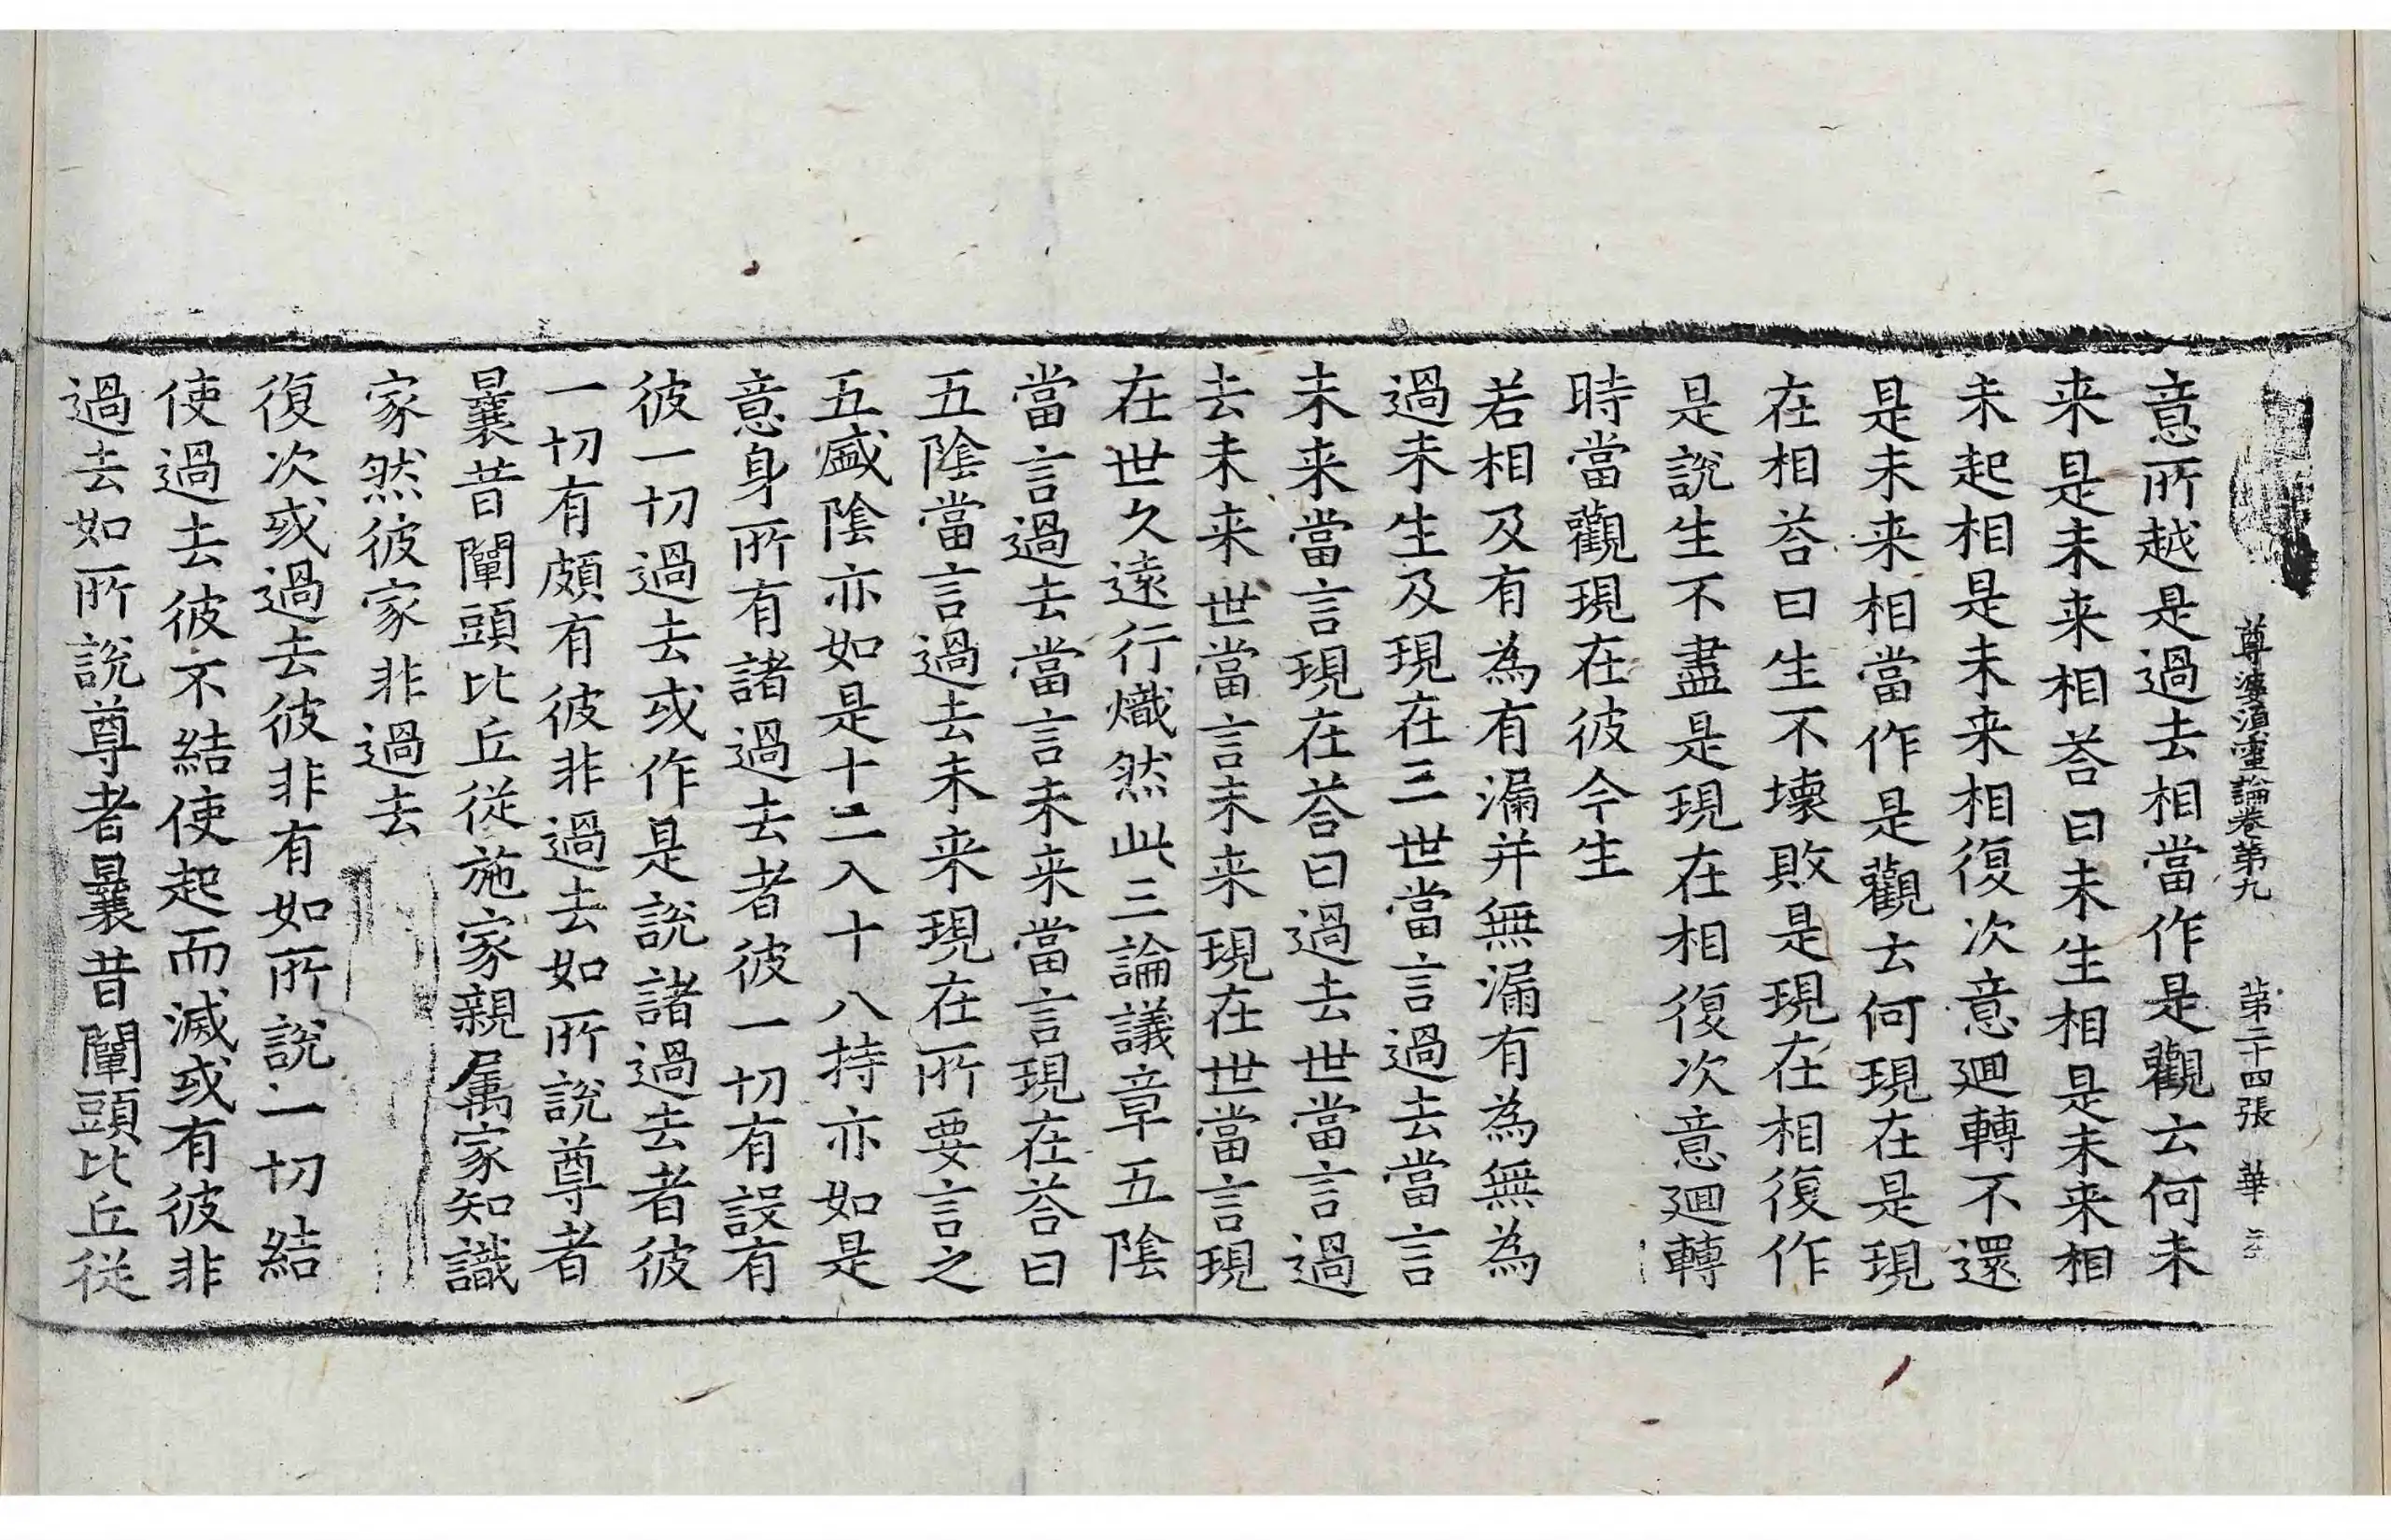 尊婆須蜜論卷第九　第二十四張　華
意所越是過去相當作是觀云何未
来是未来相荅曰未生相是未来相
未起相是未来相復次意迴轉不還
是未来相當作是觀云何現在是現
在相荅曰生不壞敗是現在相復作
是說生不盡是現在相復次意迴轉
時當觀現在彼今生
若相及有為有漏并無漏有為無為
過未生及現在三世當言過去當言
未来當言現在荅曰過去世當言過
去未来世當言未来現在世當言現
在世久遠行熾然此三論議章五陰
當言過去當言未来當言現在荅曰
五陰當言過去未来現在所要言之
五盛陰亦如是十二入十八持亦如是
意身所有諸過去者彼一切有設有
彼一切過去或作是說諸過去者彼
一切有頗有彼非過去如所說尊者
曩昔闡頭比丘從施家親属家知識
家然彼家非過去
復次或過去彼非有如所說一切結
使過去彼不結使起而滅或有彼非
過去如所說尊者曩昔闡頭比丘從